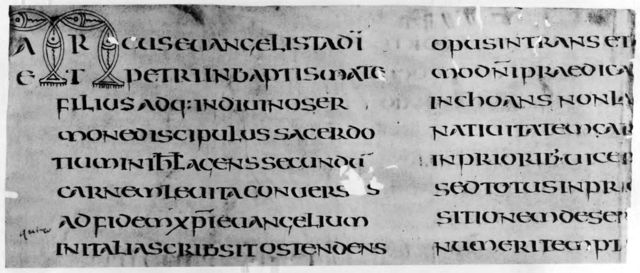 MARCUSEUANGELISTADĪ
ETPETRIINBAPTISMATE
FILIUSADQ:INDIUINOSER
MONEDISCIPULUSSACERDO
TIUMINIH̅L̅AGENSSECUNDŪ
CARNEMLEUITACONUERS S
ADFIDEMXP̅IEUANGELIUM
INITALIASCRIBSITOSTENDENS
OPUSINTRANSET
MODN̅IPRAEDICA
INCHOANSNONLA
NATIUITATEMCAR
INPRIORIB·UICER
SEDTOTUSINPRI
SITIONEMDESER
NUMERITEMPL